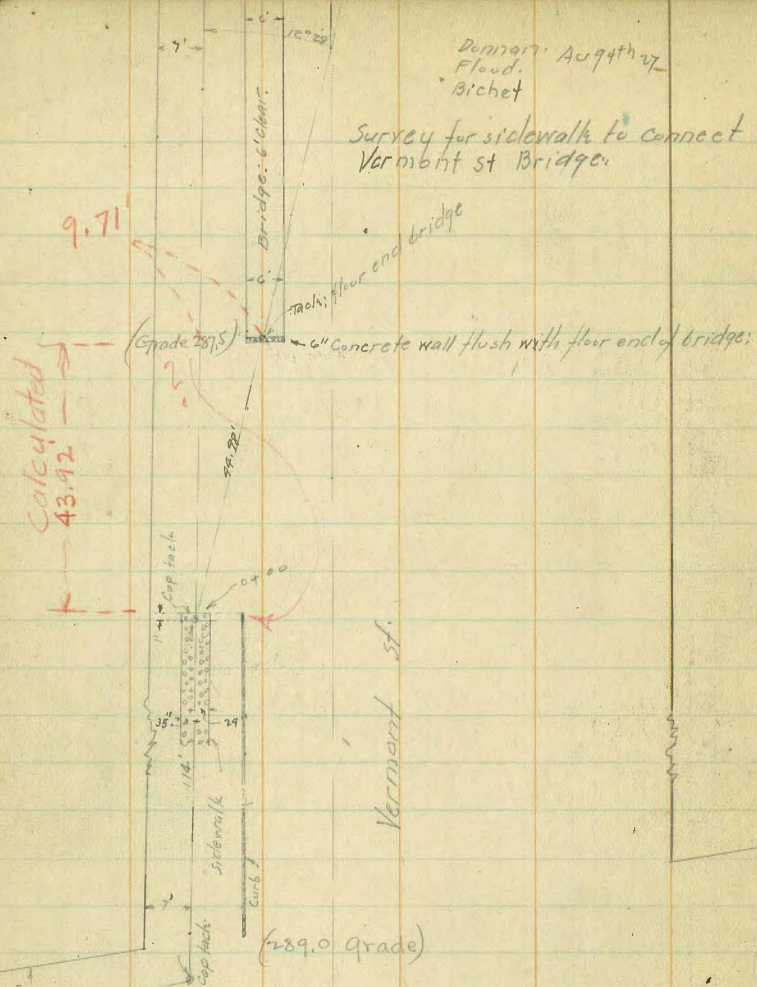 6'
7'
12° 28'
Donnan. Aug 4th 27
Flood.
Bichet
Survey for sidewalk to connect
Vermont st Bridge.
Bridge: 6' Clear.
9.71'
6'
Tack; floor end bridge
(Grade 287.5)
6" Concrete wall flush with floor end of bridge:
?
Calculated
43.92'
44.98'
Cap tack
0+00
1'
35"
29
114'
Sidewalk
Curb
Vermont St.
7'
Cap tack
(289.0 Grade)